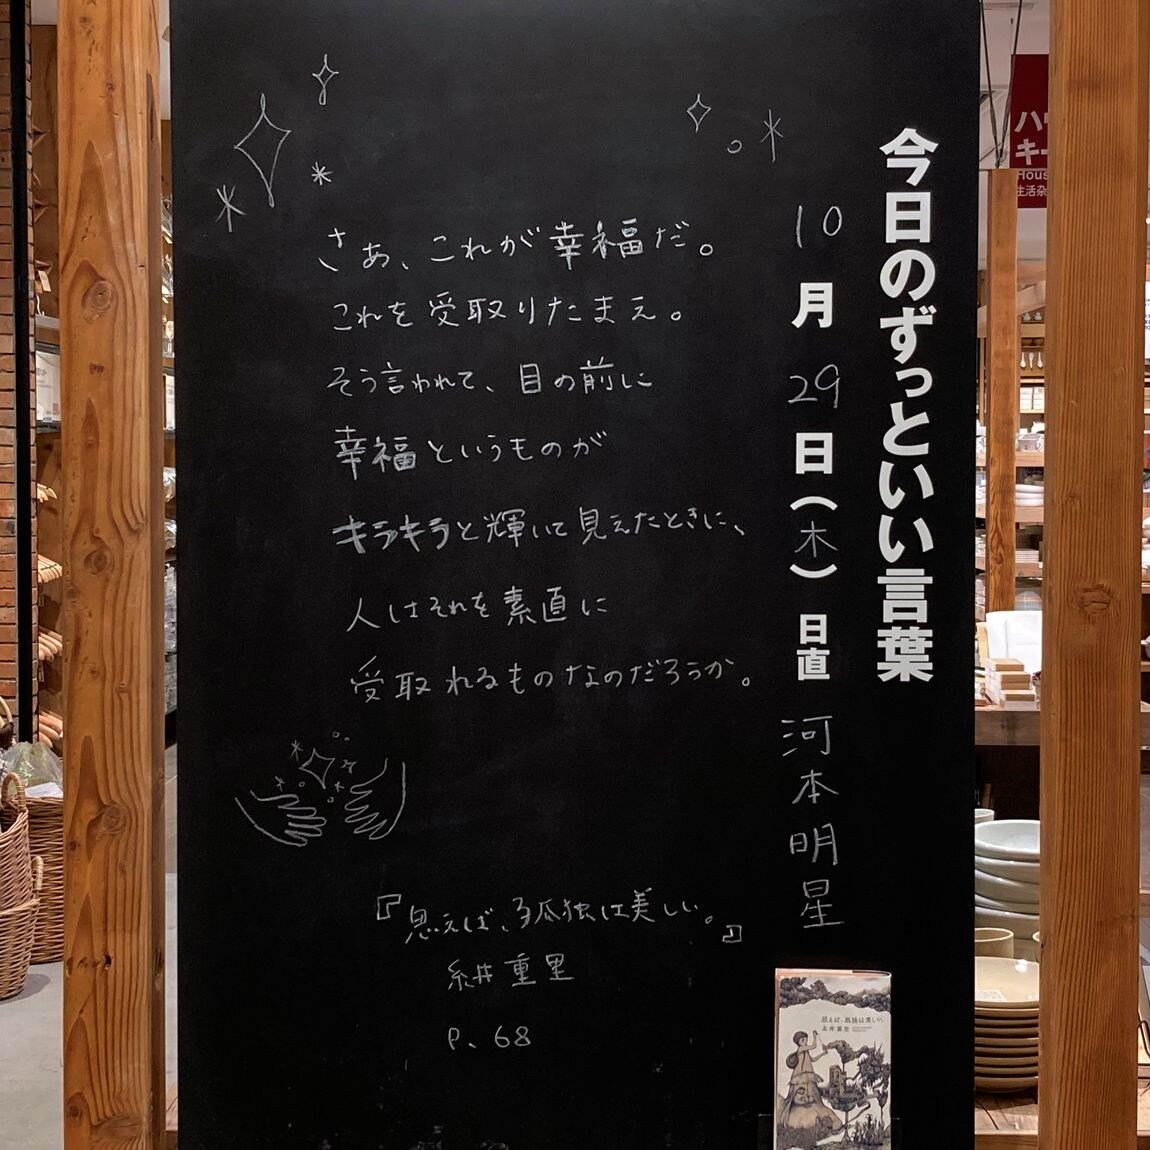 今日のずっといい言葉
10月29日(木) 日直 河本明星
さあ、これが幸福だ。
これを受取りたまえ。
そう言われて、目の前に
幸福というものが
キラキラと輝いて見えたときに、
人はそれを素直に
受取れるものなのだろうか。
『思えば、孤独は美しい。』
糸井重里
P.68
思えば、孤独は美しい。
糸井重里
ハ
キー
Hous
生活杂